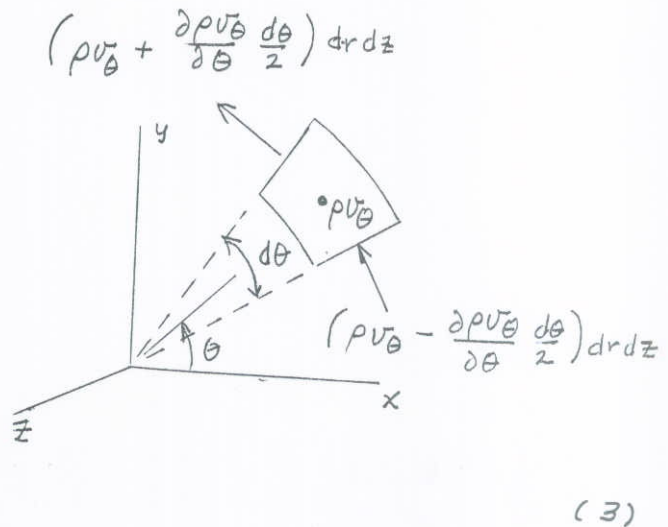 (ρv_θ + ∂ρv_θ/∂θ dθ/2) dr dz
y
ρv_θ
dθ
(ρv_θ - ∂ρv_θ/∂θ dθ/2) dr dz
θ
x
z
(3)